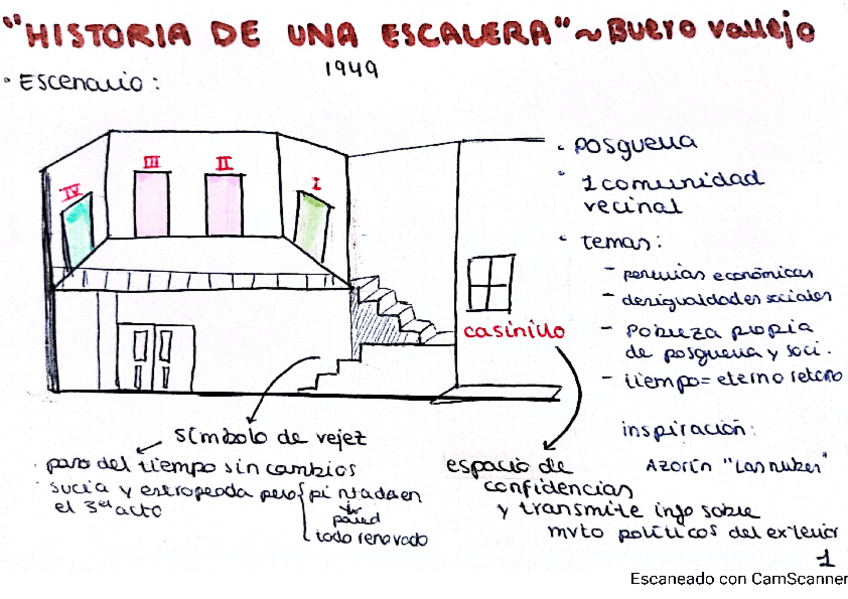 "HISTORIA DE UNA ESCALERA" ~ Buero Vallejo
1949
• Escenario:
IV
III
II
I
casinillo
• posguerra
• 1 comunidad
vecinal
• temas:
- penurias económicas
- desigualdades sociales
- pobreza propia
de posguerra y soci.
- tiempo = eterno retorno
inspiración:
Azorín "Las nubes"
símbolo de vejez
· paso del tiempo sin cambios
· sucia y estropeada pero { pintada en
el 3er acto
pared
todo renovado
espacio de
confidencias
y transmite info sobre
mvto políticos del exterior
1
Escaneado con CamScanner